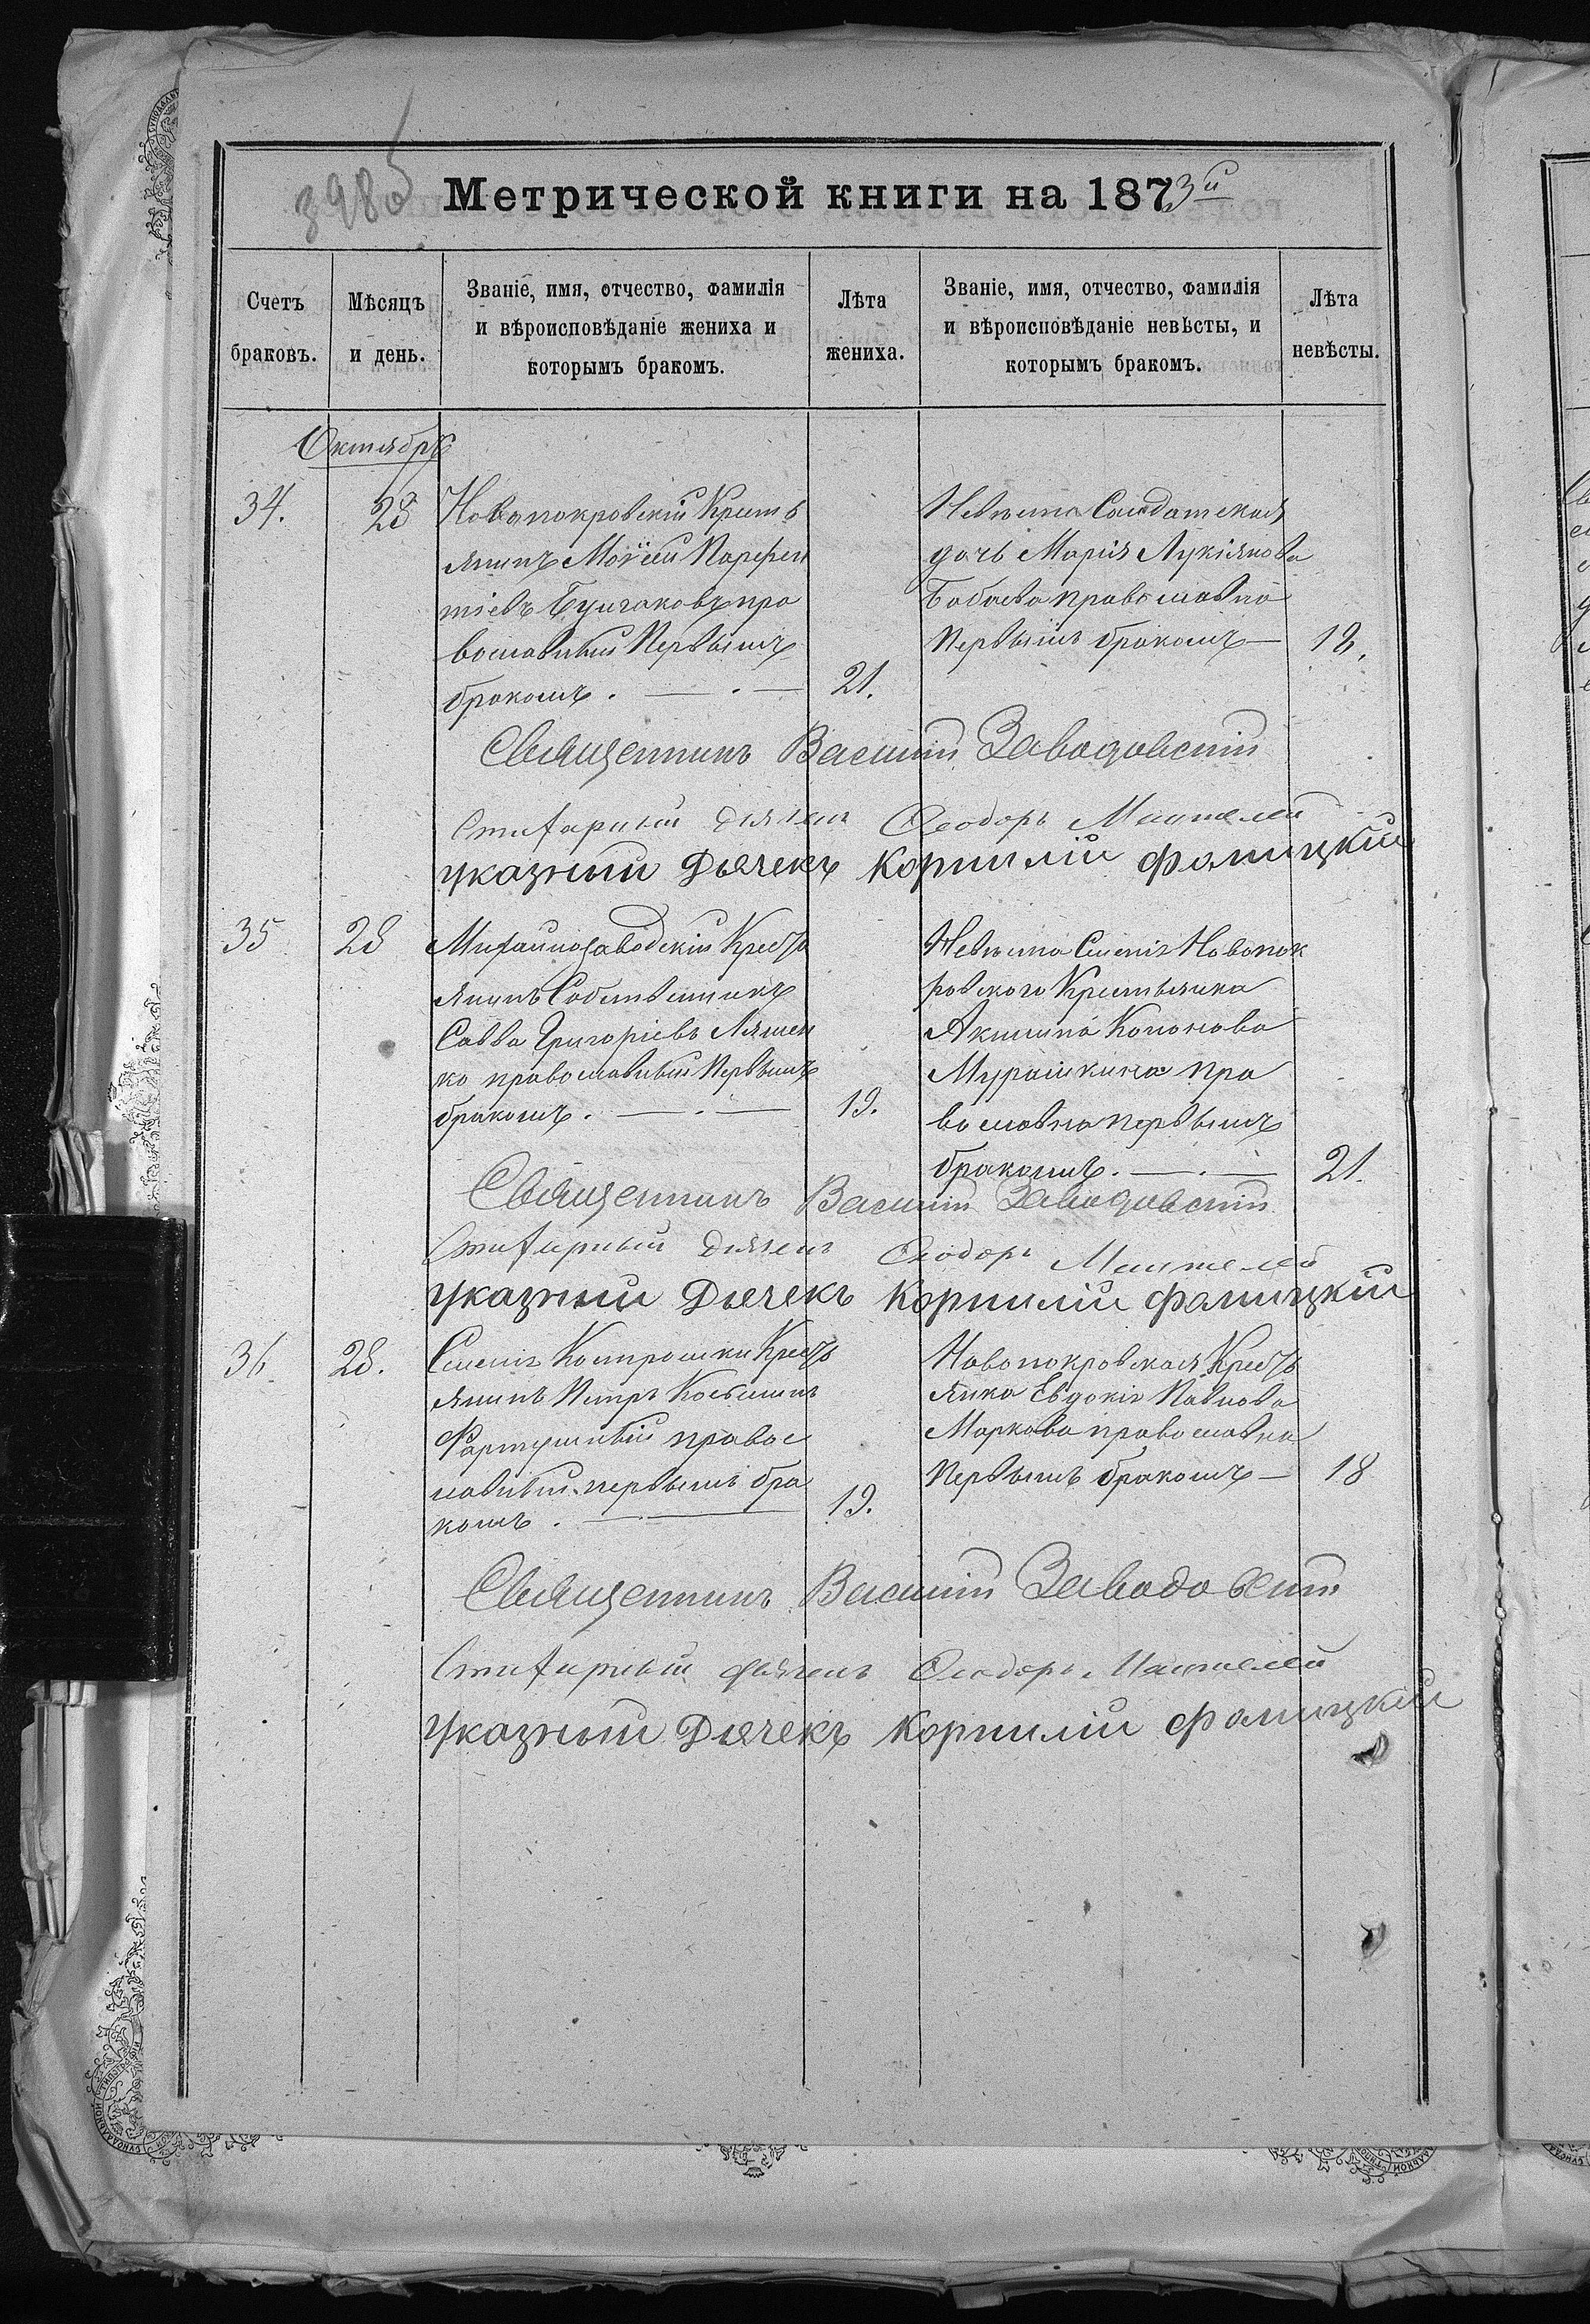 398об
Метрической книги на 1873й
Счетъ браковъ.
Мѣсяцъ и день.
Званіе, имя, отчество, фамилія и вѣроисповѣданіе жениха и которымъ бракомъ.
Лѣта жениха.
Званіе, имя, отчество, фамилія и вѣроисповѣданіе невѣсты, и которымъ бракомъ.
Лѣта невѣсты.
Октябрь
34.
28
Новопокровскій Кресть
янинъ Моѵсей Парфен
тіевъ Булгаковъ пра
вославный Первымъ
бракомъ.
21.
Невѣста Солдатская
дочь Марія Лукіянова
Бабаева православна
Первымъ бракомъ
18.
Священникъ Василій Заводовскій
Стихарный дьячекъ Ѳеодоръ
указный Дьячекъ Корнилій Фомицкій
35
28
Михайлозаводскій Кресть
янинъ Собственникъ
Савва Григоріевъ Ляшен
ко православный Первымъ
бракомъ.
19.
Невѣста Селенія Новопок
ровского Крестьянка
Акилина Кононова
Мурашкина пра
вославна первымъ
бракомъ.
21.
Священникъ Василій Заводовскій
Стихарный дьячекъ Ѳеодоръ
указный Дьячекъ Корнилій Фомицкій
36.
28.
Селенія Кресть
янинъ Петръ Косьминъ
Фартушный правос
лавный первымъ бра
комъ.
19.
Новопокровская Кресть
янка Евдокія Павлова
Маркова православна
Первымъ бракомъ
18
Священникъ Василій Заводовскій
Стихарный дьячекъ Ѳеодоръ
указный Дьячекъ Корнилій Фомицкій